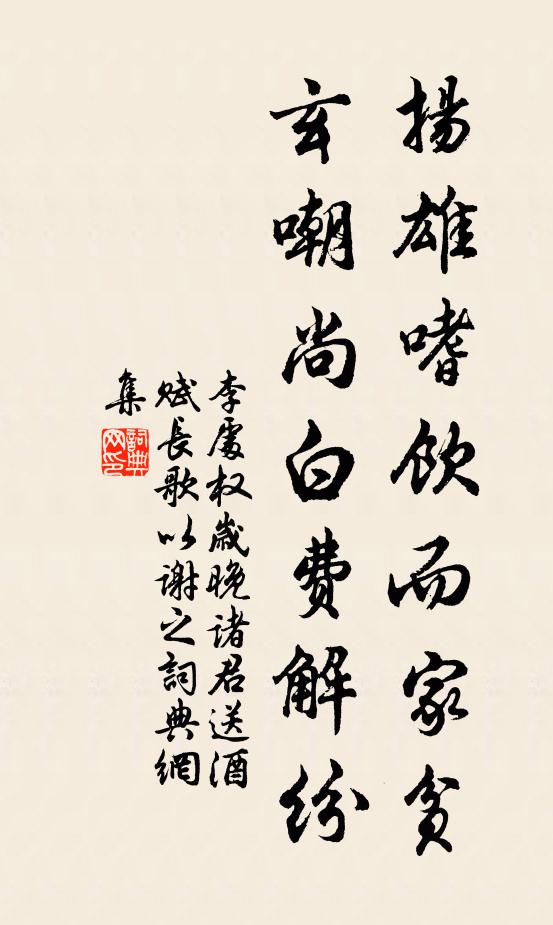 揚雄嗜飲而家貧
玄嘲尚白費解紛
李處权歲晚諸君送酒
赋長歌以謝之詞典網
集
詞典
网印